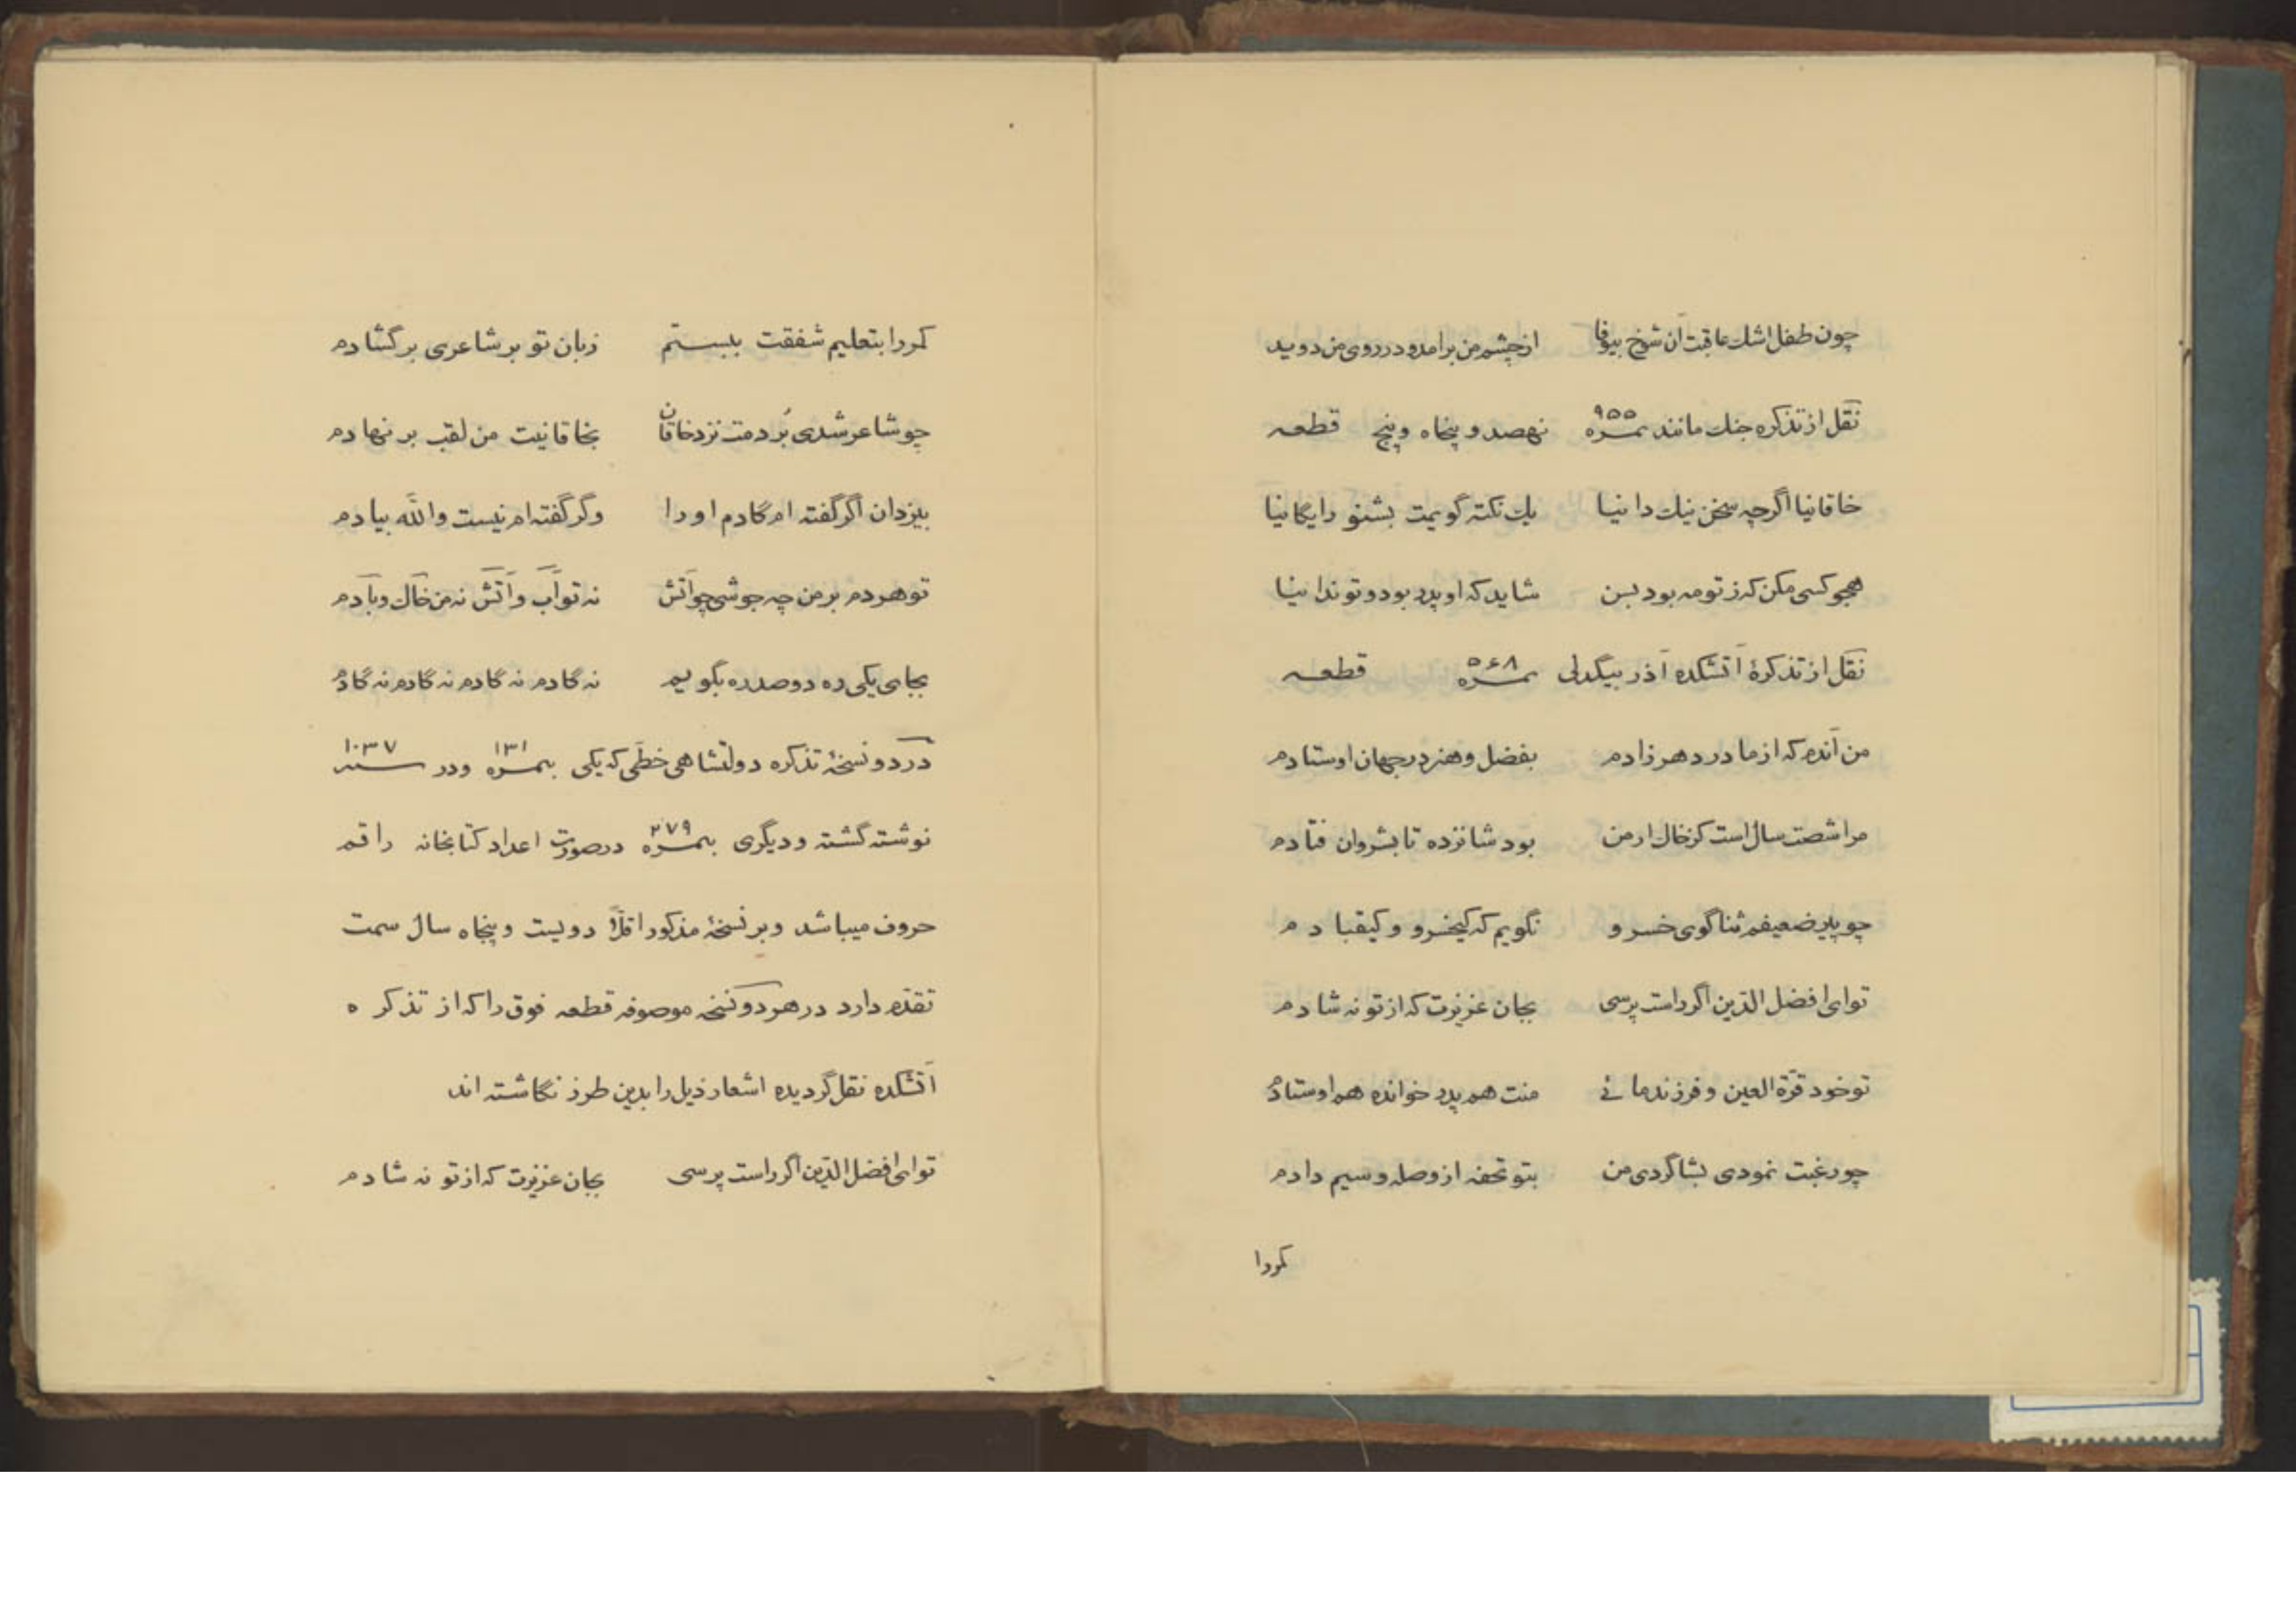 چون طفل اشك عاقبت آن شوخ بیوفا از چشم من برامد و در روی من دوید
نقل از تذکره جنك مانند نمره ۹۵۵ نهصد و پنجاه و پنج قطعه
خاقانیا اگرچه سخن نیك دانیا یك نکته گویمت بشنو رایگانیا
هجو کسی مکن که ز تو مه بود بسن شاید که او پدر بود و تو ندانیا
نقل از تذکرهٔ آتشکده آذر بیگدلی نمره ۵۶۸ قطعه
من آندم که از مادر دهر زادم بفضل و هنر در جهان اوستادم
مرا شصت سال است کز خاك ارمن بود شانزده تا بشروان فتادم
چو پیر ضعیفم ثناگوی خسرو نگویم که کیخسرو و کیقبادم
تو ای افضل الدّین اگر راست پرسی بجان عزیزت که از تو نه شادم
تو خود قرّة العین و فرزند مائی منت هم پدر خوانده هم اوستادم
چو رغبت نمودی بشاگردی من بتو تحفه از وصله و سیم دادم
کمر را
کمر را بتعلیم شفقت ببستم زبان تو بر شاعری برگشادم
چو شاعر شدی بُردمت نزد خاقان بخاقانیت من لقب بر نهادم
بیزدان اگر گفته ام گادم او را وگر گفته ام نیست والله بیادم
تو هر دم بر من چه جوشی چو آتش نه تو آب و آتش نه من خاك و بادم
بجای یکی ره دو صد ره بگویم نه گادم نه گادم نه گادم نه گادم
در دو نسخهٔ تذکره دولتشاهی خطّی که یکی بنمره ۱۳۱ و در سنه ۱۰۳۷
نوشته گشته و دیگری بنمره ۲۷۹ در صورت اعداد کتابخانه راقم
حروف میباشد و بر نسخهٔ مذکور اقلّاً دویست و پنجاه سال سمت
تقدّم دارد در هر دو نسخه موصوفه قطعه فوق را که از تذکره
آتشکده نقل گردیده اشعار ذیل را بدین طرز نگاشته اند
تو ای افضل الدّین اگر راست پرسی بجان عزیزت که از تو نه شادم